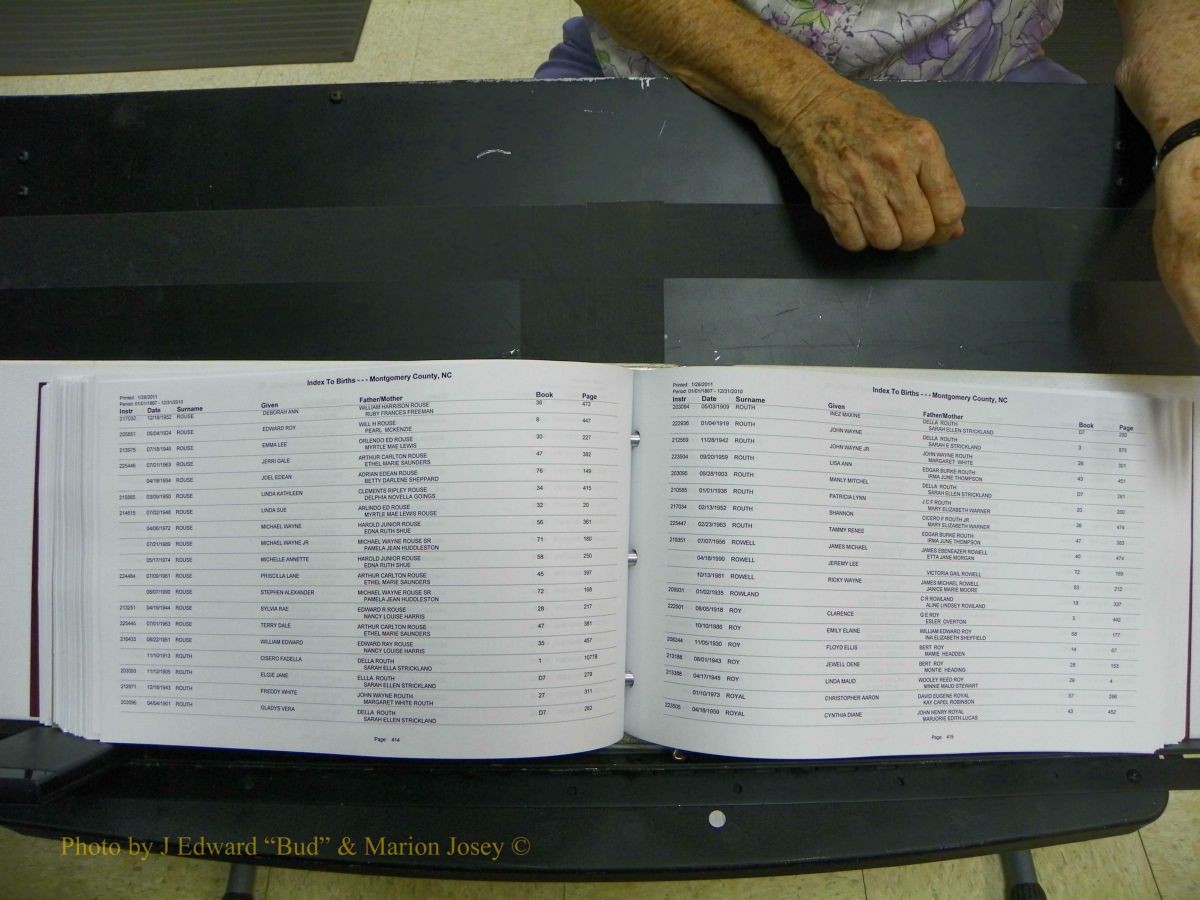 Index To Births - - - Montgomery County, NC
Printed: 1/28/2011
Period: 01/01/1867 - 12/31/2010
Instr Date Surname Given Father/Mother Book Page
217032 12/18/1952 ROUSE DEBORAH ANN WILLIAM HARRISON ROUSE 36 472
RUBY FRANCES FREEMAN
205651 05/04/1924 ROUSE EDWARD ROY WILL H ROUSE 8 447
PEARL MCKENZIE
213975 07/18/1946 ROUSE EMMA LEE ORLENDO ED ROUSE 30 227
MYRTLE MAE LEWIS
225446 07/01/1963 ROUSE JERRI GALE ARTHUR CARLTON ROUSE 47 382
ETHEL MARIE SAUNDERS
04/18/1994 ROUSE JOEL EDEAN ADRIAN EDEAN ROUSE 76 149
BETTY DARLENE SHEPPARD
215865 03/09/1950 ROUSE LINDA KATHLEEN CLEMENTS RIPLEY ROUSE 34 415
DELPHIA NOVELLA GOINGS
214815 07/02/1948 ROUSE LINDA SUE ARLINDO ED ROUSE 32 20
MYRTLE MAE LEWIS ROUSE
04/06/1972 ROUSE MICHAEL WAYNE HAROLD JUNIOR ROUSE 56 361
EDNA RUTH SHUE
07/21/1989 ROUSE MICHAEL WAYNE JR MICHAEL WAYNE ROUSE SR 71 180
PAMELA JEAN HUDDLESTON
05/17/1974 ROUSE MICHELLE ANNETTE HAROLD JUNIOR ROUSE 58 250
EDNA RUTH SHUE
224484 07/09/1961 ROUSE PRISCILLA LANE ARTHUR CARLTON ROUSE 45 397
ETHEL MARIE SAUNDERS
08/07/1990 ROUSE STEPHEN ALEXANDER MICHAEL WAYNE ROUSE SR 72 168
PAMELA JEAN HUDDLESTON
213251 04/19/1944 ROUSE SYLVIA RAE EDWARD R ROUSE 28 217
NANCY LOUISE HARRIS
225445 07/01/1963 ROUSE TERRY DALE ARTHUR CARLTON ROUSE 47 381
ETHEL MARIE SAUNDERS
216433 08/22/1951 ROUSE WILLIAM EDWARD EDWARD RAY ROUSE 35 457
NANCY LOUISE HARRIS
11/10/1913 ROUTH CISERO FADELLA DELLA ROUTH 1 1077B
SARAH ELLA STRICKLAND
203093 11/12/1905 ROUTH ELGIE JANE ELLLA ROUTH D7 279
SARAH ELLEN STRICKLAND
212971 12/18/1943 ROUTH FREDDY WHITE JOHN WAYNE ROUTH 27 311
MARGARET WHITE ROUTH
203096 04/04/1901 ROUTH GLADYS VERA DELLA ROUTH D7 282
SARAH ELLEN STRICKLAND
Page 414
Index To Births - - - Montgomery County, NC
Printed: 1/28/2011
Period: 01/01/1867 - 12/31/2010
Instr Date Surname Given Father/Mother Book Page
203094 05/03/1909 ROUTH INEZ MAXINE DELLA ROUTH D7 280
SARAH ELLEN STRICKLAND
222936 01/04/1919 ROUTH JOHN WAYNE DELLA ROUTH 3 873
SARAH E STRICKLAND
212569 11/28/1942 ROUTH JOHN WAYNE JR JOHN WAYNE ROUTH 26 301
MARGARET WHITE
223504 09/20/1959 ROUTH LISA ANN EDGAR BURKE ROUTH 43 451
IRMA JUNE THOMPSON
203095 09/28/1903 ROUTH MANLY MITCHEL DELLA ROUTH D7 281
SARAH ELLEN STRICKLAND
210585 01/01/1936 ROUTH PATRICIA LYNN J C F ROUTH 20 200
MARY ELIZABETH WARNER
217034 02/13/1952 ROUTH SHANNON CICERO F ROUTH JR 36 474
MARY ELIZABETH WARNER
225447 02/23/1963 ROUTH TAMMY RENEE EDGAR BURKE ROUTH 47 383
IRMA JUNE THOMPSON
219351 07/07/1956 ROWELL JAMES MICHAEL JAMES EBENEAZER ROWELL 40 474
ETTA JANE MORGAN
04/18/1990 ROWELL JEREMY LEE 72 169
VICTORIA GAIL ROWELL
10/13/1981 ROWELL RICKY WAYNE JAMES MICHAEL ROWELL 63 212
JANICE MARIE MOORE
209931 01/02/1935 ROWLAND C R ROWLAND 19 337
ALINE LINDSEY ROWLAND
222501 08/05/1918 ROY CLARENCE G E ROY 3 442
ESLER OVERTON
10/10/1986 ROY EMILY ELAINE WILLIAM EDWARD ROY 68 177
INA ELIZABETH SHEFFIELD
208244 11/06/1930 ROY FLOYD ELLIS BERT ROY 14 67
MAMIE HEADDEN
213188 06/01/1943 ROY JEWELL OENE BERT ROY 28 153
MONTIE HEADING
213386 04/17/1945 ROY LINDA MAUD WOOLEY REED ROY 29 4
MINNIE MAUD STEWART
01/10/1973 ROYAL CHRISTOPHER AARON DAVID EUGENE ROYAL 57 286
KAY CAPEL ROBINSON
223505 04/18/1959 ROYAL CYNTHIA DIANE JOHN HENRY ROYAL 43 452
MARJORIE EDITH LUCAS
Page 415
Photo by J Edward “Bud” & Marion Josey ©